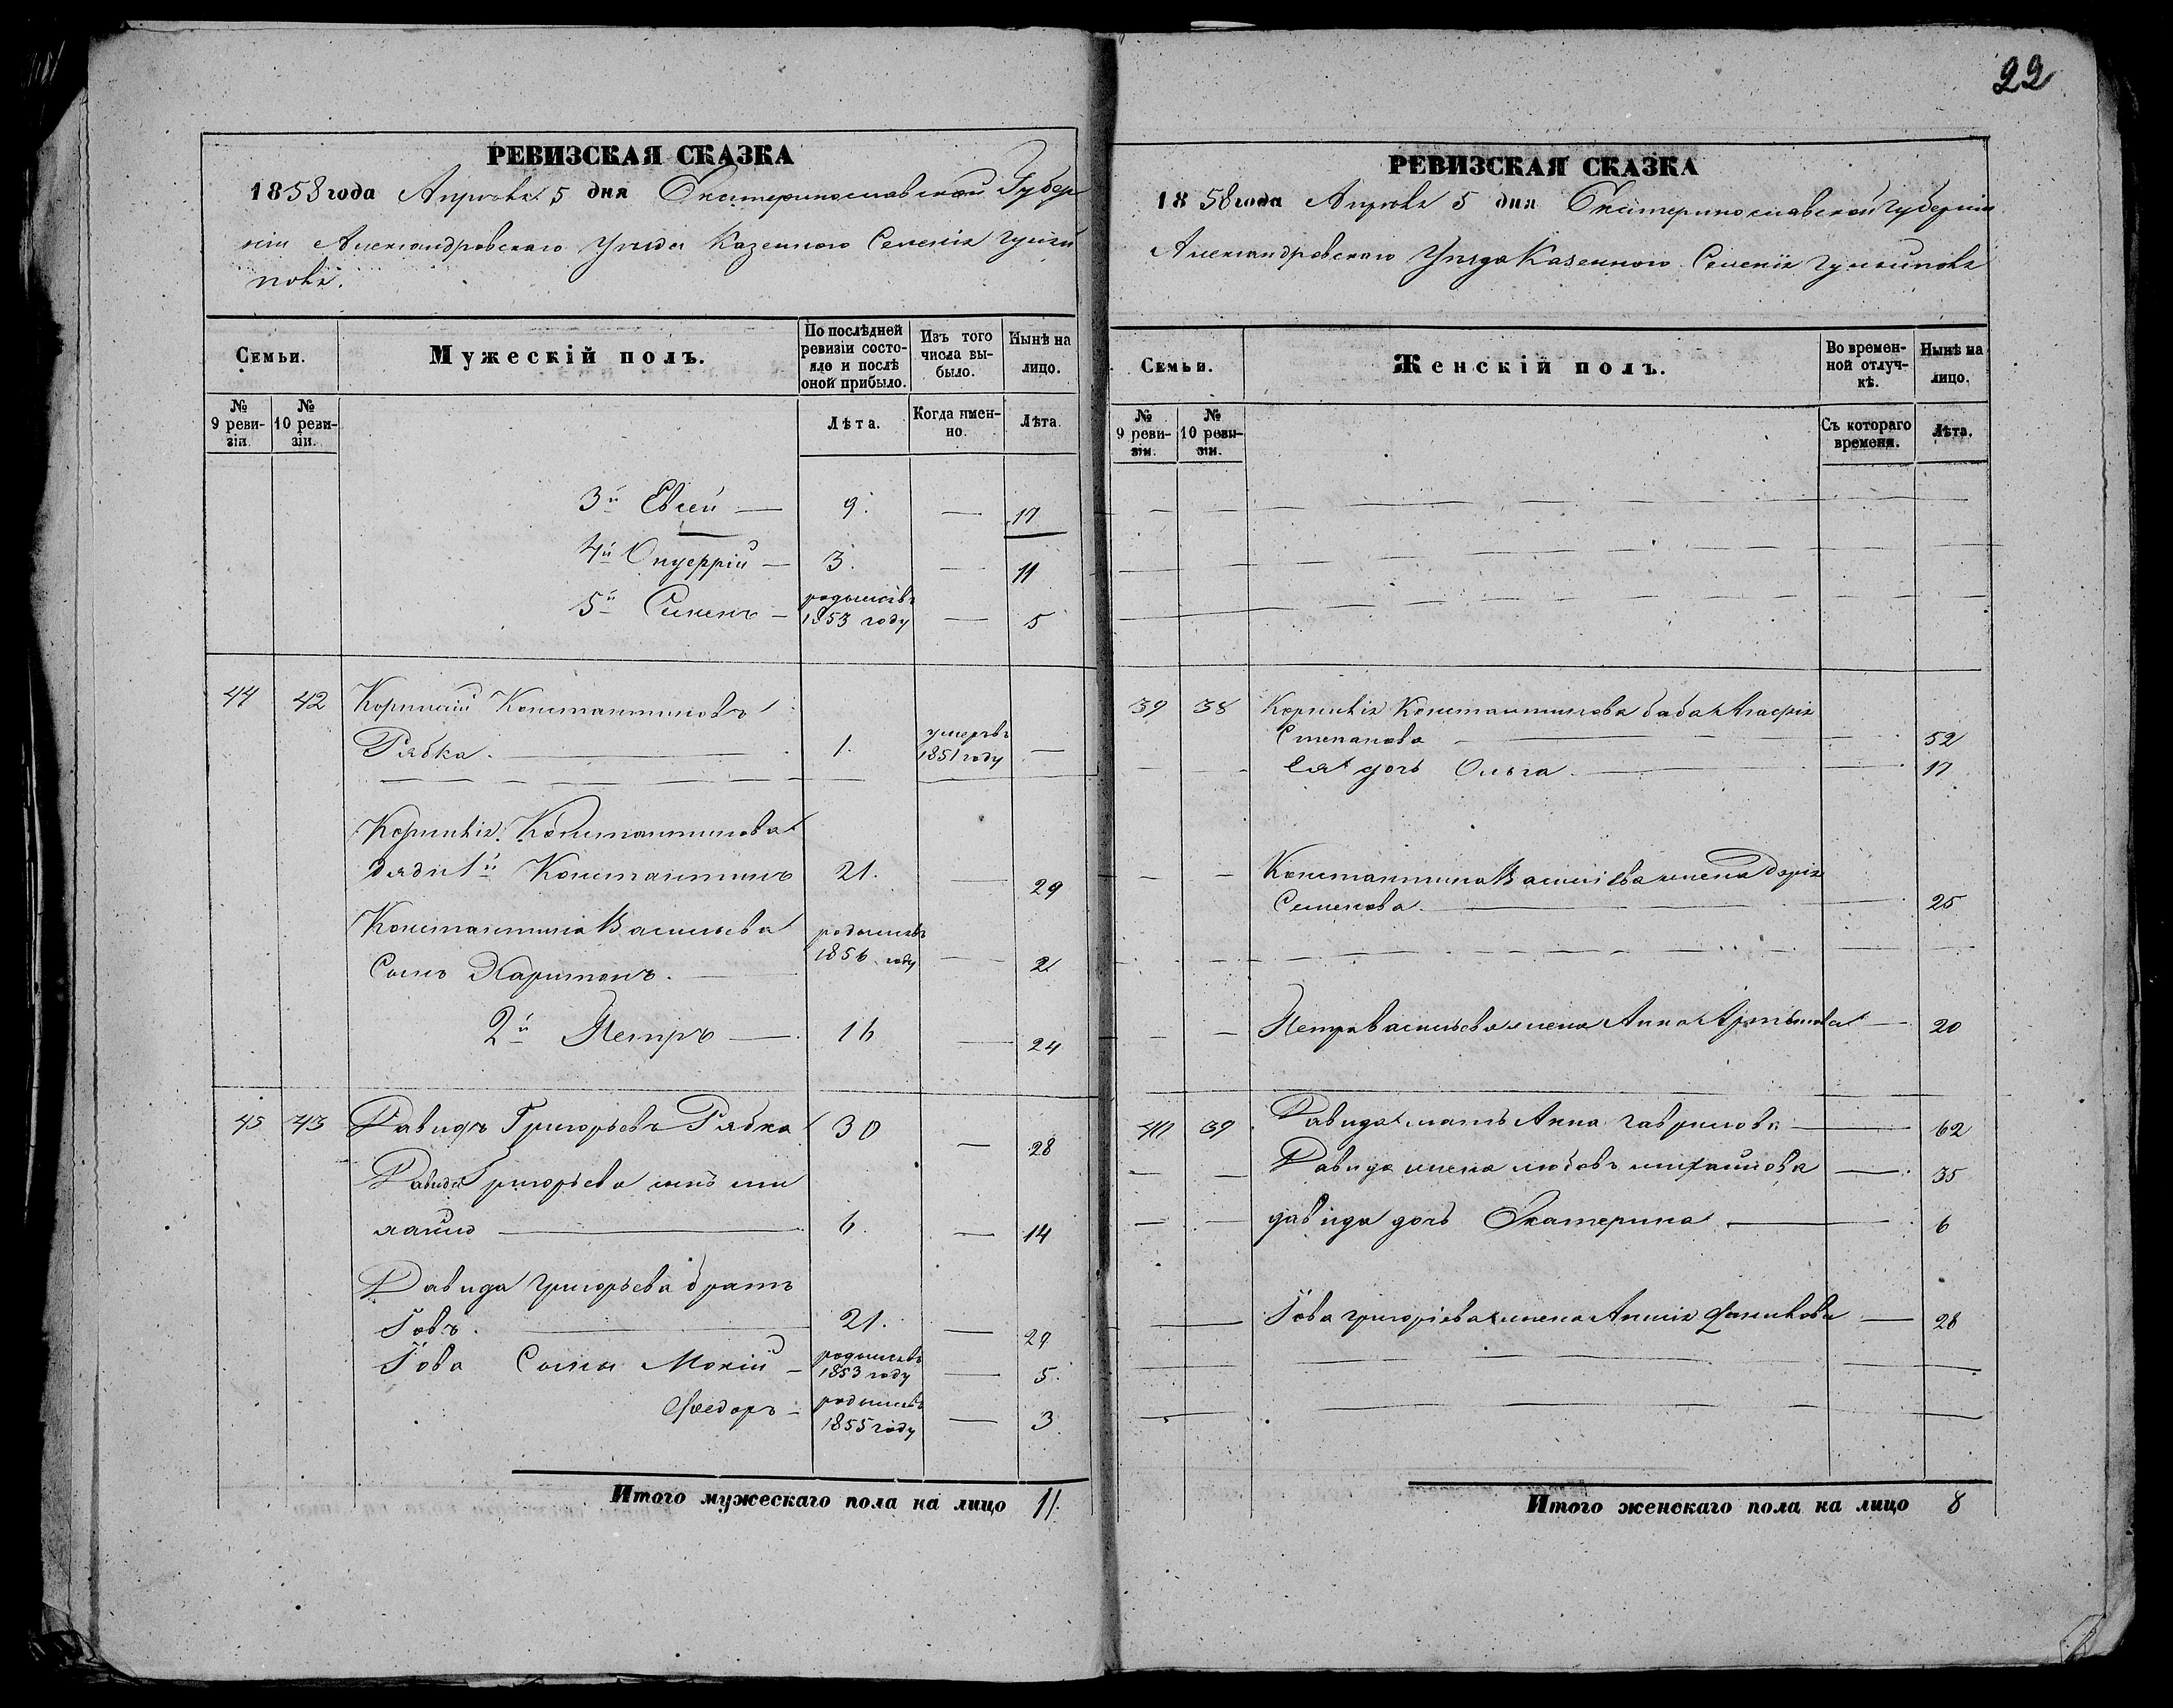 22
РЕВИЗСКАЯ СКАЗКА
1858 года Апрѣля 5 дня Екатеринославской Губер
ніи Александровскаго Уѣзда Казеннаго Селенія Гуляй
поля.
Семьи.
Мужескій полъ.
По послѣдней ревизіи состояло и послѣ оной прибыло.
Изъ того числа выбыло.
Нынѣ на лицо.
№ 9 ревизіи.
№ 10 ревизіи.
Лѣта.
Когда именно.
Лѣта.
3й Евсей — 9. — 17
4й Онуфрій — 3. — 11
5й Семенъ — родился въ 1853 году — 5
44 42 Корнилій Константиновъ
Рябка. — 1. умеръ въ 1851 году —
Корнилія Константинова
дяди 1й Константинъ 21. — 29
Константина Васильева
Сынъ Харитонъ. — родился въ 1856 году — 2
2й Петръ — 16 — 24
45 43 Давидъ Григорьевъ Рябка 30 — 28
Давида Григорьева сынъ ми
хайло — 6. — 14
Давида Григорьева братъ
Іовъ. — 21. — 29
Іова Сыны Мокій — родился въ 1853 году — 5.
Федоръ — родился въ 1855 году — 3
Итого мужескаго пола на лицо 11
РЕВИЗСКАЯ СКАЗКА
1858 года Апрѣля 5 дня Екатеринославской Губерніи
Александровскаго Уѣзда Казеннаго Селенія Гуляйполя
Семьи.
Женскій полъ.
Во временной отлучкѣ.
Нынѣ на лицо.
№ 9 ревизіи.
№ 10 ревизіи.
Съ котораго времени.
Лѣта.
39 38 Корнилія Константинова баба
Степанова — 52
Ея дочь Ольга. — 17
Константина Васильева жена Дарія
Семенова. — 25
Петра Васильева жена Анна — 20
40 39 Давида мать Анна Гаврилова — 62
Давида жена любовь михайлова — 35
давида дочь Екатерина — 6
Іова Григоріева жена — 28
Итого женскаго пола на лицо 8